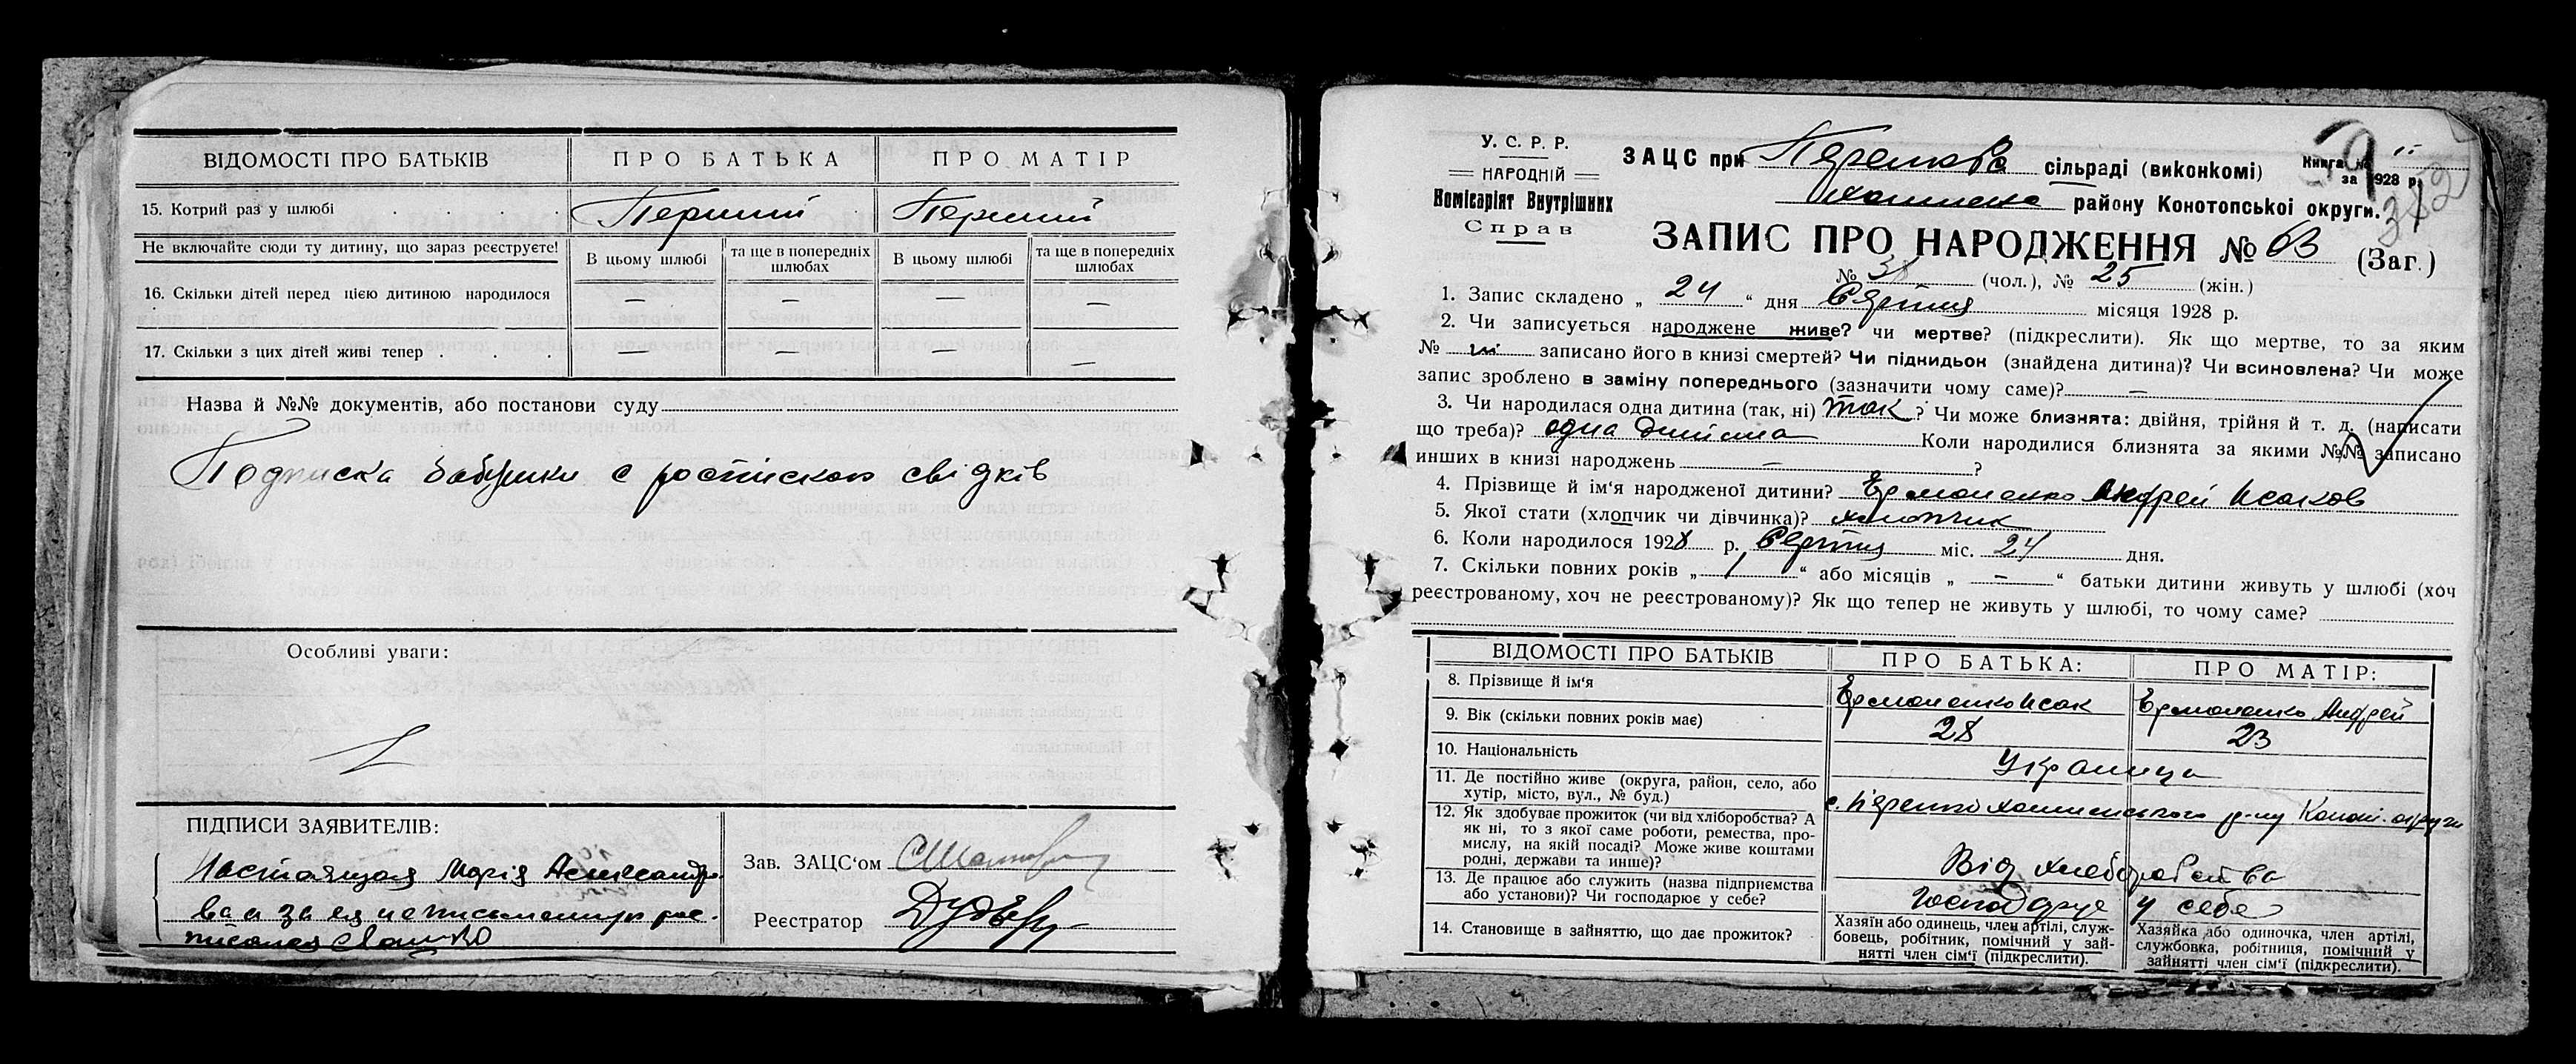 ВІДОМОСТІ ПРО БАТЬКІВ ПРО БАТЬКА ПРО МАТІР
15. Котрий раз у шлюбі . . . . . Перший Перший
Не включайте сюди ту дитину, що зараз реєструєте! В цьому шлюбі та ще в попередніх шлюбах В цьому шлюбі та ще в попередніх шлюбах
16. Скільки дітей перед цією дитиною народилося — — — —
17. Скільки з цих дітей живі тепер . . . — — — —
Назва й №№ документів, або постанови суду
Подписка бабушки с роспіскою свідків
Особливі уваги:
ПІДПИСИ ЗАЯВИТЕЛІВ:
Марія
за ея неписьменную рос-
писался
Зав. ЗАЦС'ом
Реєстратор
У. С. Р. Р.
НАРОДНІЙ
Комісаріят Внутрішних
Справ
ЗАЦС при сільраді (виконкомі)
району Конотопської округи.
Книга №
за 1928 р.
ЗАПИС ПРО НАРОДЖЕННЯ № 63 (Заг.)
№ 38 (чол.), № 25 (жін.)
1. Запис складено „ 24 “ дня Серпня місяця 1928 р.
2. Чи записується народжене живе? чи мертве? (підкреслити). Як що мертве, то за яким
№ записано його в книзі смертей? Чи підкидьок (знайдена дитина)? Чи всиновлена? Чи може
запис зроблено в заміну попереднього (зазначити чому саме)? —
3. Чи народилася одна дитина (так, ні) так ? Чи може близнята: двійня, трійня й т. д. (написати
що треба)? одна дитина Коли народилися близнята за якими №№ записано
инших в книзі народжень — ?
4. Прізвище й ім'я народженої дитини? Ермоленко Андрей Исаков
5. Якої стати (хлопчик чи дівчинка)? хлопчик
6. Коли народилося 1928 р. Серпня міс. 24 дня.
7. Скільки повних років „ 1 “ або місяців „ — “ батьки дитини живуть у шлюбі (хоч
реєстрованому, хоч не реєстрованому)? Як що тепер не живуть у шлюбі, то чому саме?
ВІДОМОСТІ ПРО БАТЬКІВ ПРО БАТЬКА: ПРО МАТІР:
8. Прізвище й ім'я Ермоленко Исак Ермоленко
9. Вік (скільки повних років має) 28 23
10. Національність Україnца
11. Де постійно живе (округа, район, село, або
хутір, місто, вул., № буд.) с. р-ну Коноt. округи
12. Як здобуває прожиток (чи від хліборобства? А
як ні, то з якої саме роботи, ремества, про-
мислу, на якій посаді? Може живе коштами
родні, держави та инше)? Від хлеборобства
13. Де працює або служить (назва підприємства
або установи)? Чи господарює у себе? Господарує у себе
14. Становище в зайняттю, що дає прожиток?
Хазяїн або одинець, член артілі, служ-
бовець, робітник, помічний у зай-
нятті член сім'ї (підкреслити).
Хазяйка або одиночка, член артілі,
службовка, робітниця, помічний у
зайнятті член сім'ї (підкреслити).